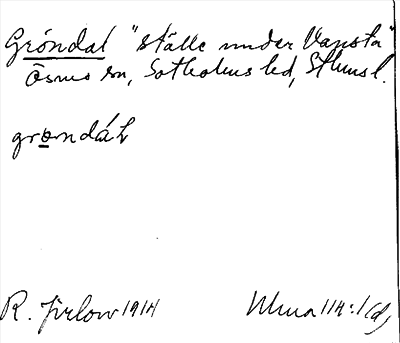 Gröndal "ställe under Vansta"
Ösmo sn, Sotholms hd, Sthms l.
grœndáL
R. Jirlow 1914